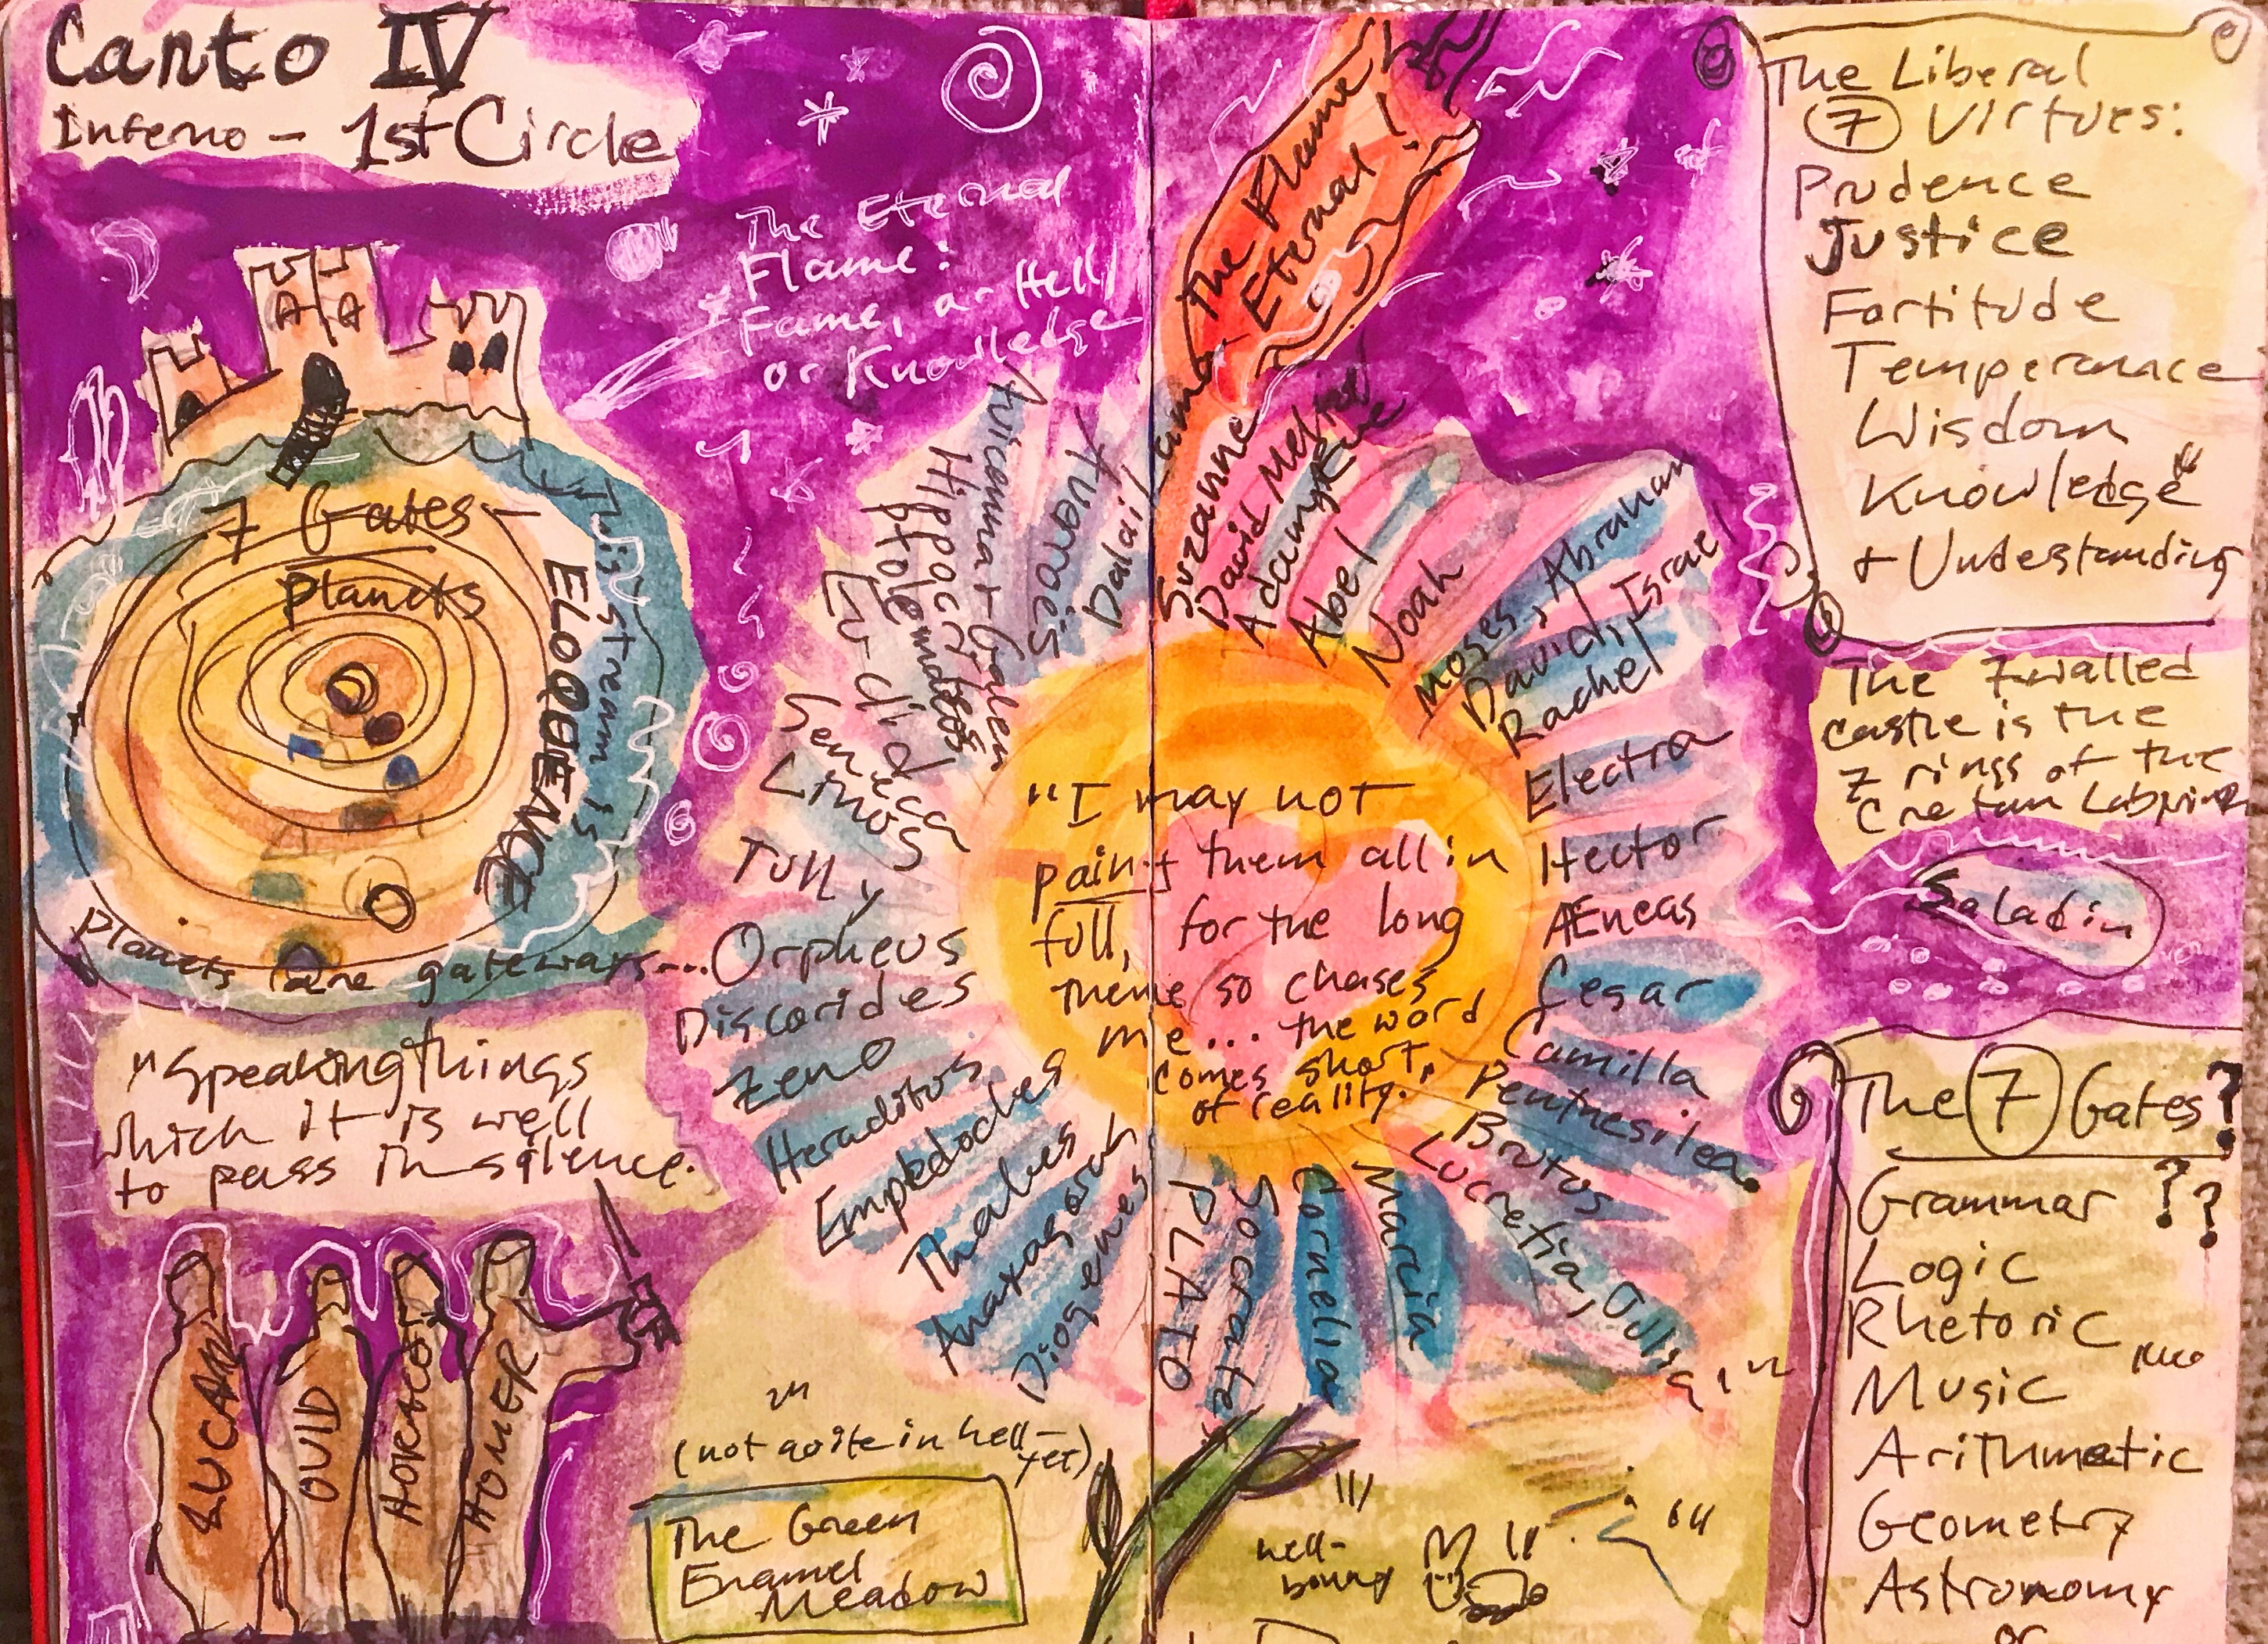 Canto IV
Inferno - 1st Circle
The Eternal
Flame:
Fame, or Hell
or Knowledge
The Flame
Eternal!
7 Gates
Planets
This stream is
ELOQUENCE
Planets are gateways...
"Speaking things
which it is well
to pass in silence.
LUCAN
OVID
HORACE
HOMER
Avicenna + Galen
Hippocrates
Ptolemaeos
Euclid
Seneca
Linos
Tully
Orpheus
Discorides
Zeno
Heraclitos
Empedocles
Thales
Anaxagoras
Diogenes
PLATO
Socrates
Cornelia
Marcia
Lucretia, Julia
Brutos
Penthesilea
Camilla
Cesar
AEneas
Hector
Electra
Rachel
David, Israel
Moses, Abraham
Noah
Abel
Adam, Eve
David Meltzer
Suzanne
Dalai Lama
Averroës
"I may not
paint them all in
full, for the long
theme so chases
me... the word
comes short,
of reality.
(not quite in hell-
yet)
The Green
Enamel
Meadow
hell-
bound
The Liberal
7 Virtues:
Prudence
Justice
Fortitude
Temperance
Wisdom
Knowledge
+ Understanding
The 7 walled
castle is the
7 rings of the
Cretan Labyrinth
Saladin
The 7 Gates?
Grammar ??
Logic
Rhetoric
Music
Arithmetic
Geometry
Astronomy
or